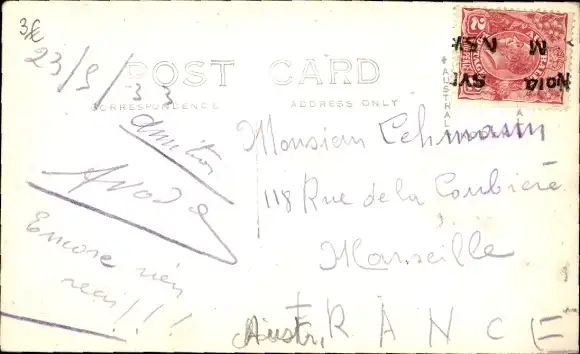 3€
23/9/33
POST CARD
CORRESPONDENCE
ADDRESS ONLY
AUSTRAL
Amitiés
Encore rien
reçu!!!
Monsieur Lehmann
118 Rue de la Coubière
Marseille
FRANCE
Austr.
2